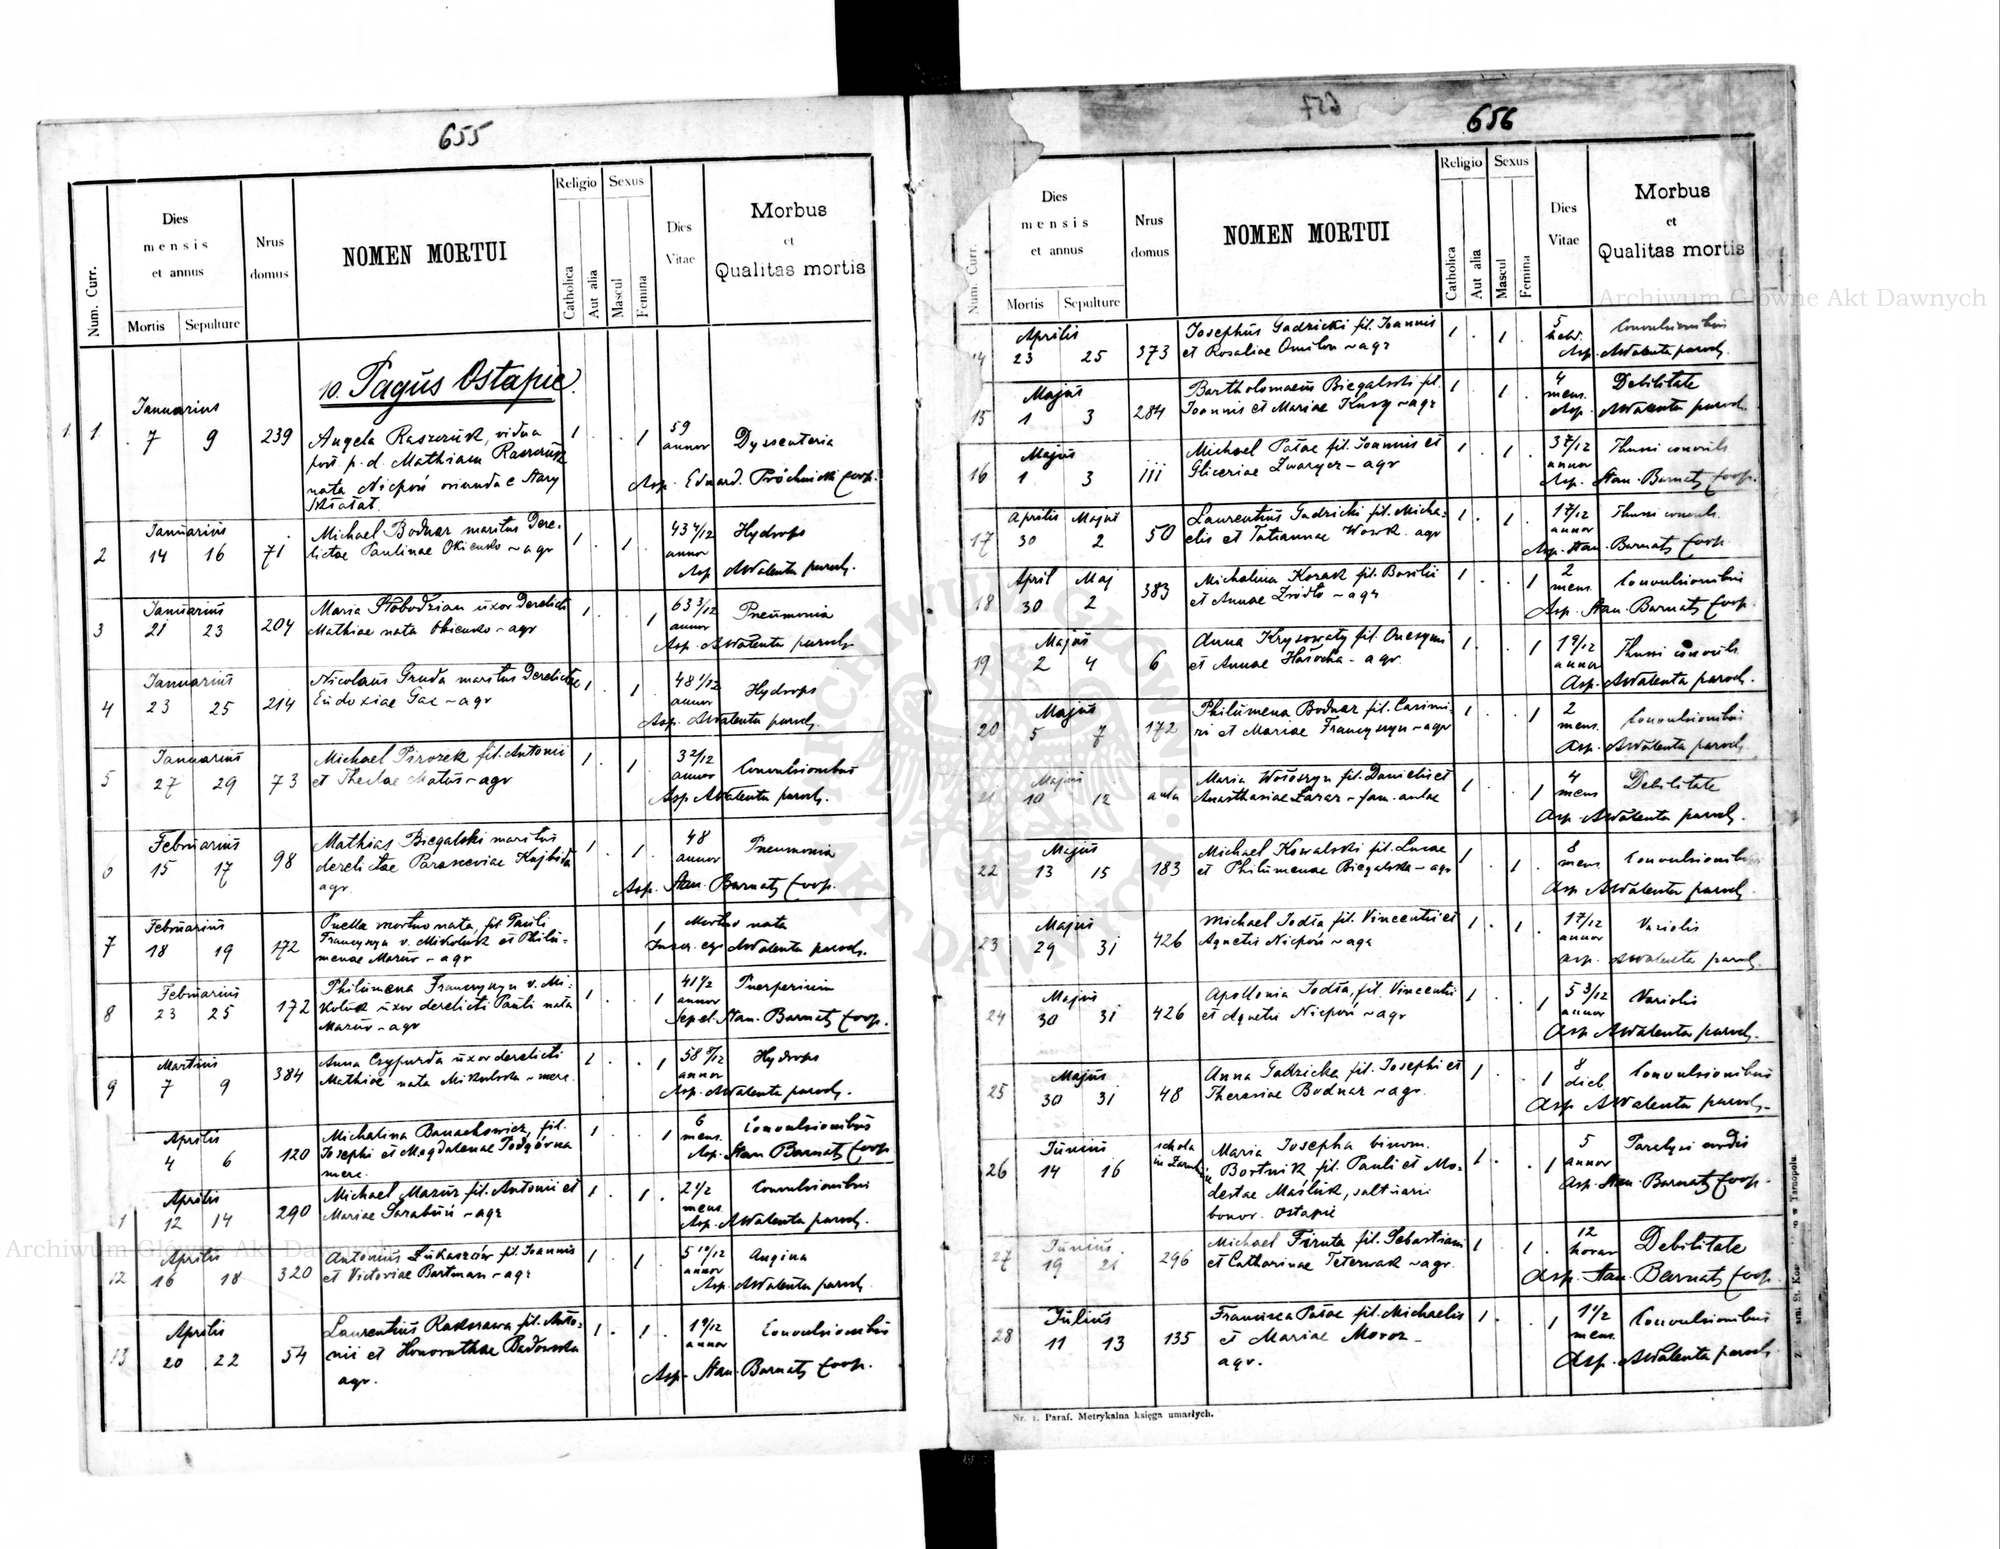 655
Num. Curr.
Dies
mensis
et annus
Mortis
Sepulture
Nrus
domus
NOMEN MORTUI
Religio
Catholica
Aut alia
Sexus
Mascul
Femina
Dies
Vitae
Morbus
et
Qualitas mortis
10. Pagus Ostapie
1 1. Januarius 7 9 239
Angela Raszczuk, vidua
post p. d. Mathiam Raszczuk
nata Nicpoń oriunda e Stary
Skałat.
1 1 59 annor Dyssenteria
Asp. Eduard. Próchnicki Coop.
2 Januarius 14 16 71
Michael Bodnar maritus dere-
lictae Paulinae Okienko - agr
1 1 43 4/12 annor Hydrops
Asp. AWalenta paroch.
3 Januarius 21 23 204
Maria Słobodzian uxor derelicti
Mathiae nata Okienko - agr
1 1 63 3/12 annor Pneumonia
Asp. AWalenta paroch.
4 Januarius 23 25 214
Nicolaus Gruda maritus derelictae
Eudoxiae Gac - agr
1 1 48 1/12 annor Hydrops
Asp. AWalenta paroch.
5 Januarius 27 29 73
Michael Pirozek fil. Antonii
et Theclae Matus - agr
1 1 3 2/12 annor Convulsionibus
Asp AWalenta paroch.
6 Februarius 15 17 98
Mathias Biegalski maritus
derelictae Parasceviae
agr.
1 1 48 annor Pneumonia
Asp. Stan. Barnatz Coop.
7 Februarius 18 19 172
Puella mortuo nata, fil Pauli
Franczyszyn v. Mikoluk et Philu-
menae Mazur - agr
1 Mortuo nata
AWalenta paroch.
8 Februarius 23 25 172
Philumena Franczyszyn v. Mi-
koluk uxor derelicti Pauli nata
Mazur - agr
1 1 41 1/2 annor Puerperium
Sepel. Stan. Barnatz Coop.
9 Martius 7 9 384
Anna Czypurda uxor derelicti
Mathiae nata Mikulska - merc.
1 1 58 8/12 annor Hydrops
Asp. AWalenta paroch.
Aprilis 4 6 120
Michalina Banachowicz, fil.
Josephi et Magdalenae Podgórna
merc.
1 1 6 mens. Convulsionibus
Asp. Stan Barnatz Coop
1 Aprilis 12 14 290
Michael Mazur fil. Antonii et
Mariae Sarabun - agr
1 1 2 1/2 mens. Convulsionibus
Asp. AWalenta paroch.
12 Aprilis 16 18 320
Antonius Łukaszów fil. Joannis
et Victoriae Bartman - agr
1 1 5 10/12 annor Angina
Asp. AWalenta paroch.
13 Aprilis 20 22 54
Laurentius Rakszawa fil. Anto-
nii et Honorathae Badowska
agr.
1 1 annor Convulsionibus
Asp. Stan. Barnatz Coop.
657
656
Num. Curr.
Dies
mensis
et annus
Mortis
Sepulture
Nrus
domus
NOMEN MORTUI
Religio
Catholica
Aut alia
Sexus
Mascul
Femina
Dies
Vitae
Morbus
et
Qualitas mortis
14 Aprilis 23 25 373
Josephus Gadzicki fil. Joannis
et Rosaliae Omilon - agr
1 1 5 hebd. Convulsionibus
Asp. AWalenta paroch.
15 Majus 1 3 284
Bartholomaeus Biegalski fil.
Joannis et Mariae Kusy - agr
1 1 4 mens. Debilitate
Asp. AWalenta paroch.
16 Majus 1 3 111
Michael Patac fil. Joannis et
Gliceriae Zwarycz - agr
1 1 3 7/12 annor Thussi convuls
Asp. Stan. Barnatz Coop.
17 Aprilis 30 Majus 2 50
Laurentius Gadzicki fil. Micha-
elis et Tatiannae Wowk. agr
1 1 1 7/12 annor Thussi convuls.
Asp. Stan. Barnatz Coop
18 April 30 Maj 2 383
Michalina Kozak fil. Basilii
et Annae Zródło - agr
1 1 2 mens. Convulsionibus
Asp. Stan. Barnatz Coop.
19 Majus 2 4 6
Anna Krysowaty fil. Onesymi
et Annae Hałocha - agr.
1 1 1 9/12 annor Thussi convuls
Asp. AWalenta paroch.
20 Majus 5 7 172
Philumena Bodnar fil. Casimi-
ri et Mariae Franczyszyn - agr
1 1 2 mens. Convulsionibus
Asp. AWalenta paroch.
21 Majus 10 12 aula
Maria Wołoszyn fil. Danielis et
Anasthasiae Łazar - fam. aulae
1 1 4 mens Debilitate
Asp AWalenta paroch.
22 Majus 13 15 183
Michael Kowalski fil. Lucae
et Philumenae Biegalska - agr
1 1 8 mens. Convulsionibus
Asp AWalenta paroch.
23 Majus 29 31 426
Michael Jodła fil. Vincentii et
Agnetis Nicpoń - agr
1 1 1 7/12 annor Variolis
Asp. AWalenta paroch.
24 Majus 30 31 426
Apollonia Jodła, fil. Vincentii
et Agnetis Nicpoń - agr
1 1 5 3/12 annor Variolis
Asp AWalenta paroch.
25 Majus 30 31 48
Anna Gadzicka fil. Josephi et
Theresiae Bodnar - agr.
1 1 8 dieb. Convulsionibus
Asp AWalenta paroch.
26 Junius 14 16 schola in
Maria Josepha binom.
Bortnik fil. Pauli et Mo-
destae Maśluk, saltuarii
bonor. Ostapie
1 1 5 annor cordis
Asp. Stan. Barnatz Coop.
27 Junius 19 21 296
Michael Firuta fil. Sebastiani
et Catharinae Teterwak - agr.
1 1 12 horar Debilitate
Asp. Stan. Barnatz Coop.
28 Julius 11 13 135
Francisca Patac fil. Michaelis
et Mariae Moroz -
agr.
1 1 1 1/2 mens. Convulsionibus
Asp. AWalenta paroch.
Nr. 1. Paraf. Metrykalna księga umarłych.
w Tarnopolu.
Archiwum Główne Akt Dawnych
Archiwum Główne Akt Dawnych
ARCHIWUM GŁÓWNE AKT DAWNYCH